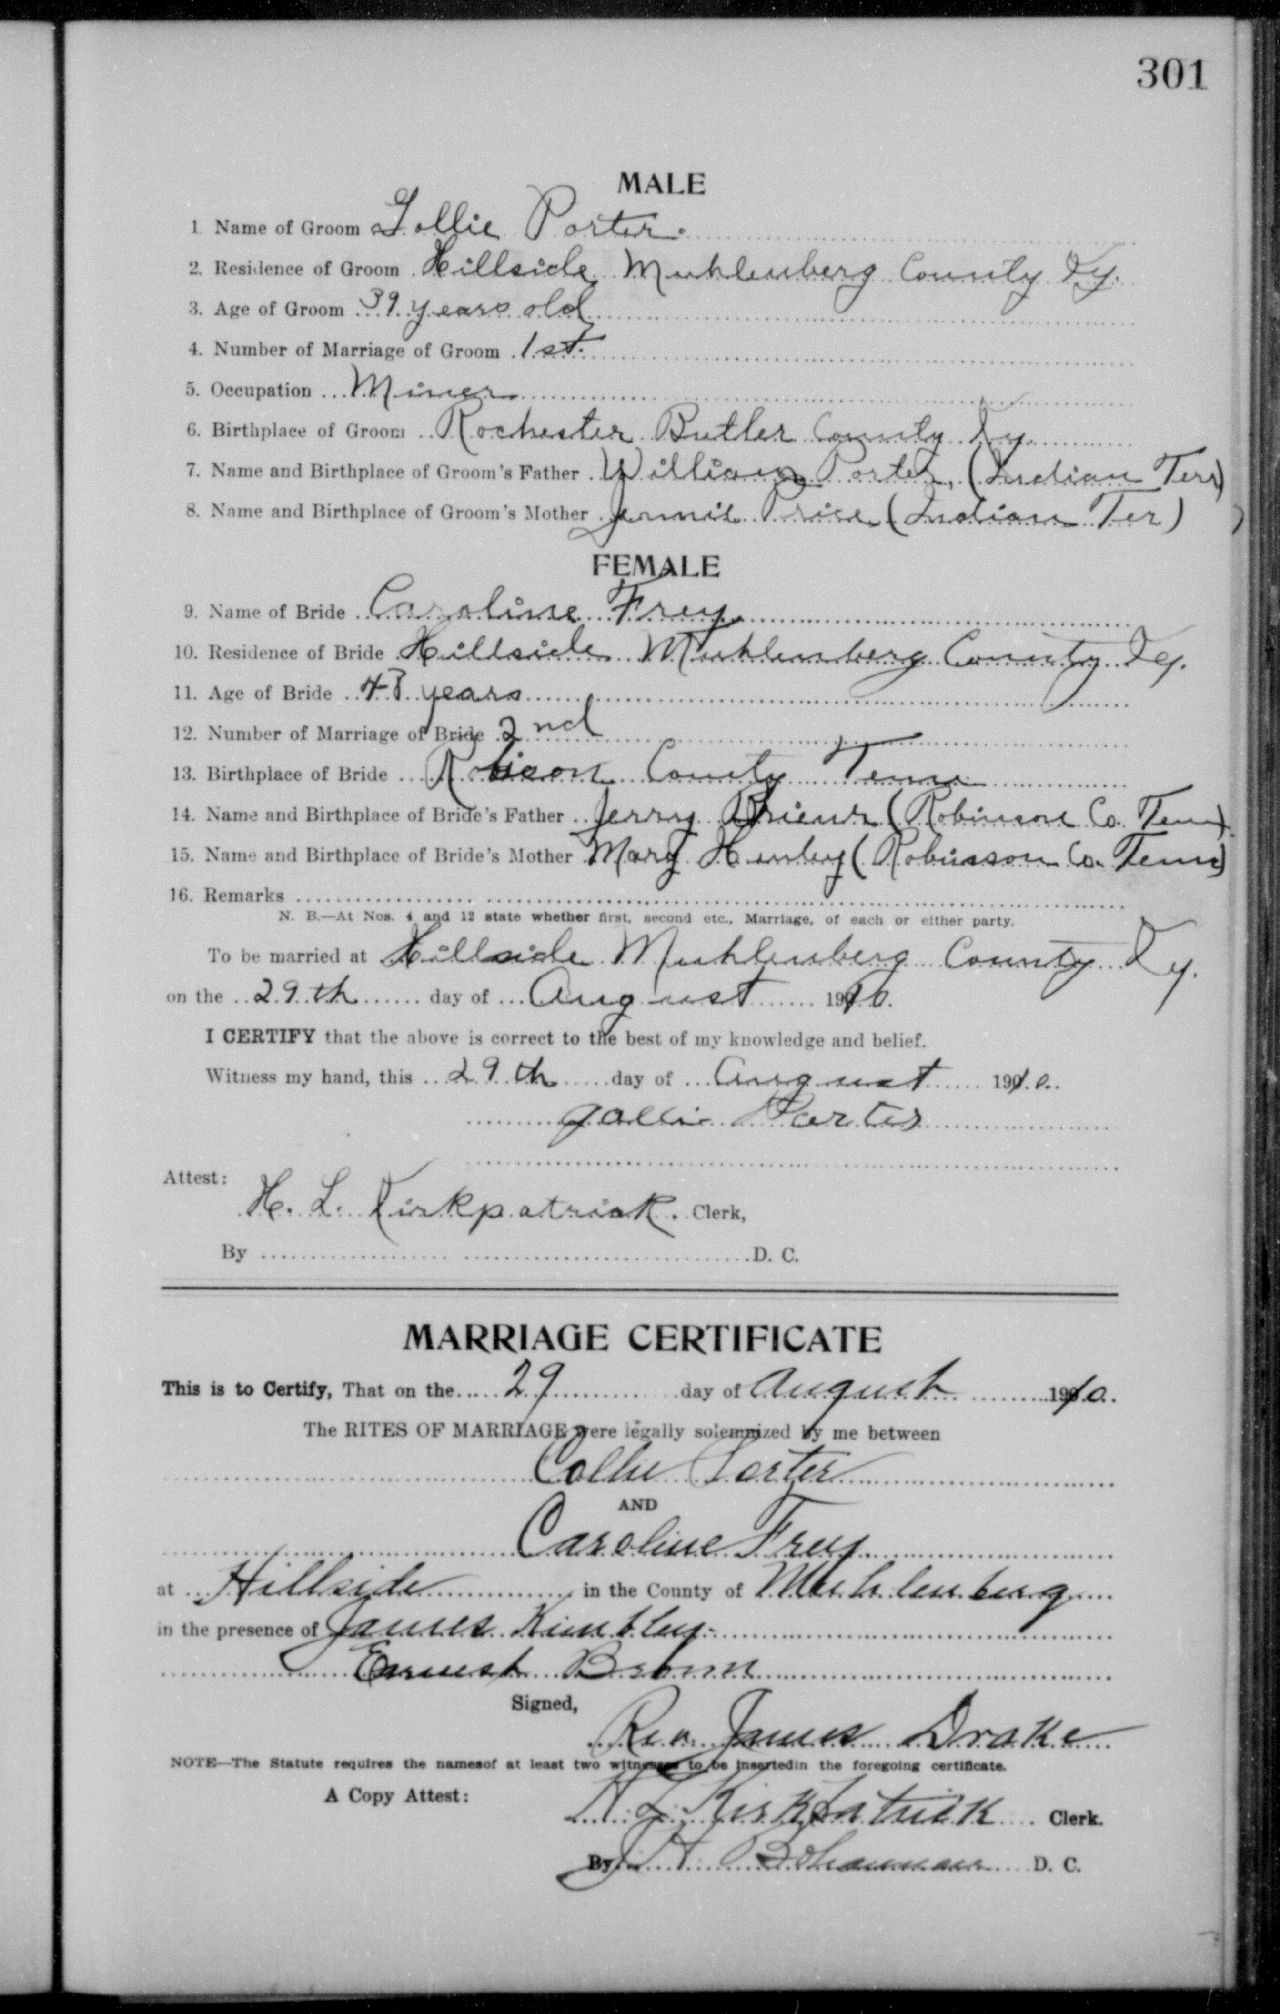 301
MALE
1. Name of Groom Gollie Porter.
2. Residence of Groom Hillside Muhlenberg County Ky.
3. Age of Groom 39 years old
4. Number of Marriage of Groom 1st.
5. Occupation Miner
6. Birthplace of Groom Rochester Butler County Ky.
7. Name and Birthplace of Groom's Father William Porter, (Indian Terr)
8. Name and Birthplace of Groom's Mother Jennie Price (Indian Ter)
FEMALE
9. Name of Bride Caroline Frey.
10. Residence of Bride Hillside Muhlenberg County Ky.
11. Age of Bride 48 years
12. Number of Marriage of Bride 2nd
13. Birthplace of Bride County Tenn
14. Name and Birthplace of Bride's Father Jerry (Robinson Co. Tenn)
15. Name and Birthplace of Bride's Mother Mary (Robinson Co. Tenn)
16. Remarks
N. B.—At Nos. 4 and 12 state whether first, second etc., Marriage, of each or either party.
To be married at Hillside Muhlenberg County Ky.
on the 29th day of August 1910.
I CERTIFY that the above is correct to the best of my knowledge and belief.
Witness my hand, this 29th day of August 1910.
Gollie Porter
Attest:
H. L. Kirkpatrick. Clerk,
By D. C.
MARRIAGE CERTIFICATE
This is to Certify, That on the 29 day of August 1910.
The RITES OF MARRIAGE were legally solemnized by me between
Collie Porter
AND
Caroline Frey
at Hillside in the County of Muhlenberg
in the presence of James Kimbley
Earnest Brown
Signed,
Rev. James Drake
NOTE—The Statute requires the namesof at least two witnesses to be insertedin the foregoing certificate.
A Copy Attest:
H L Kirkpatrick Clerk.
By Bohannan D. C.